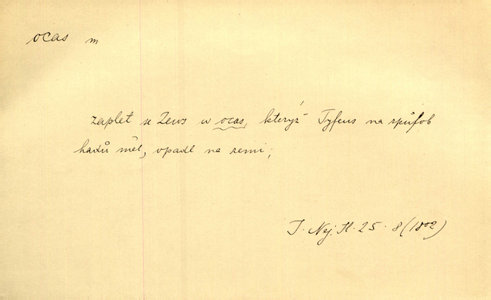 ocas m
zaplet se Zeus w ocas, kterýž Tyfeus na spůsob
hadů měl, upadl na zemi;
J. Nej. H. 25. 8 (1802)